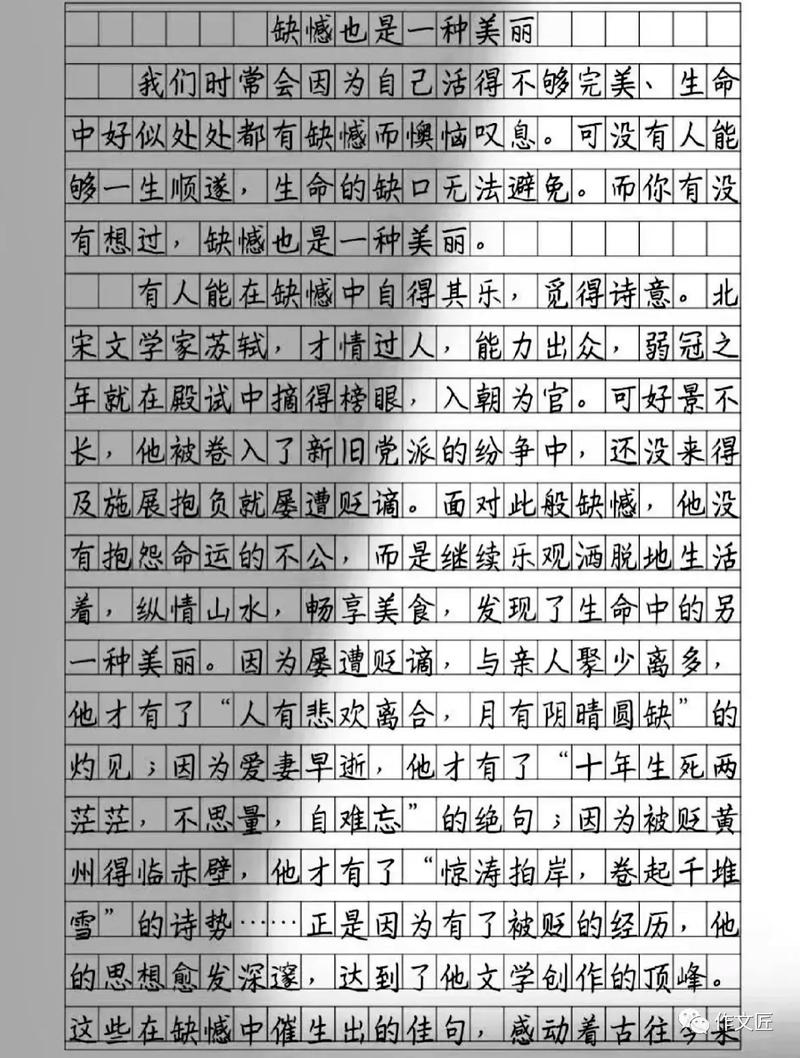 缺憾也是一种美丽
我们时常会因为自己活得不够完美、生命
中好似处处都有缺憾而懊恼叹息。可没有人能
够一生顺遂，生命的缺口无法避免。而你有没
有想过，缺憾也是一种美丽。
有人能在缺憾中自得其乐，觅得诗意。北
宋文学家苏轼，才情过人，能力出众，弱冠之
年就在殿试中摘得榜眼，入朝为官。可好景不
长，他被卷入了新旧党派的纷争中，还没来得
及施展抱负就屡遭贬谪。面对此般缺憾，他没
有抱怨命运的不公，而是继续乐观洒脱地生活
着，纵情山水，畅享美食，发现了生命中的另
一种美丽。因为屡遭贬谪，与亲人聚少离多，
他才有了“人有悲欢离合，月有阴晴圆缺”的
灼见；因为爱妻早逝，他才有了“十年生死两
茫茫，不思量，自难忘”的绝句；因为被贬黄
州得临赤壁，他才有了“惊涛拍岸，卷起千堆
雪”的诗势……正是因为有了被贬的经历，他
的思想愈发深邃，达到了他文学创作的顶峰。
这些在缺憾中催生出的佳句，感动着古往今来
作文匠